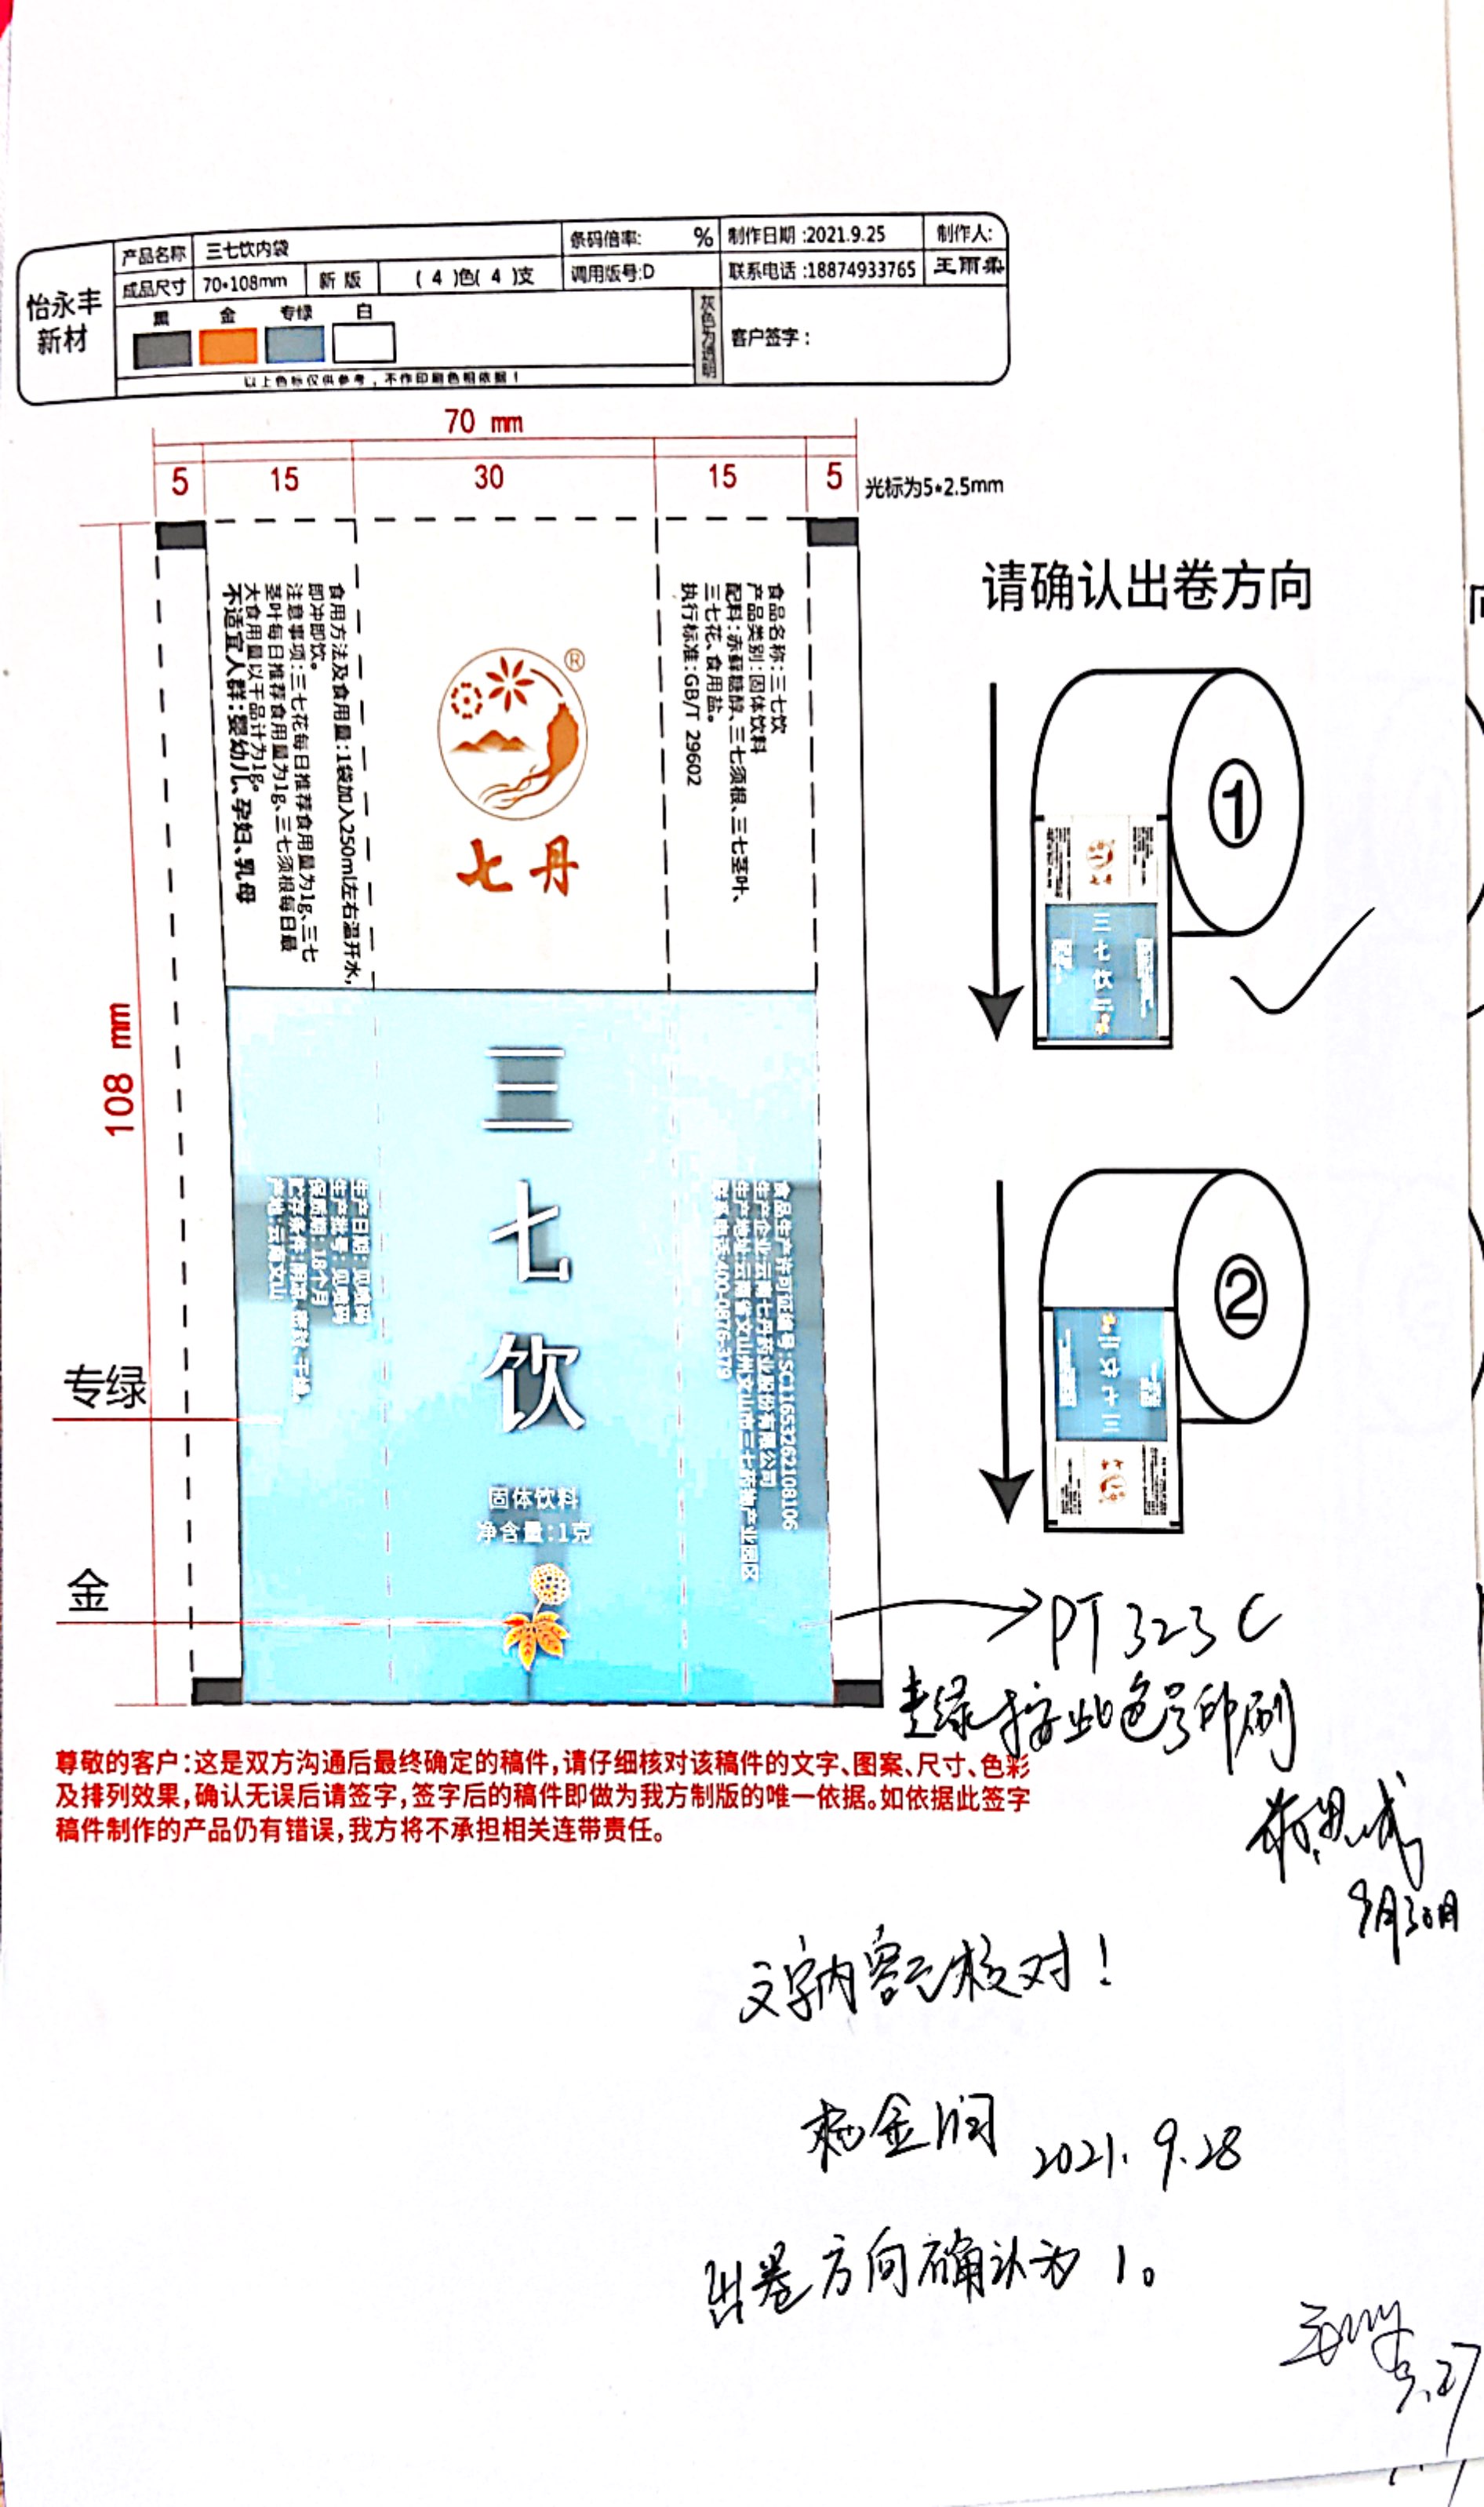 怡永丰
新材
产品名称 三七饮内袋 条码倍率: % 制作日期:2021.9.25 制作人:
成品尺寸 70*108mm 新 版 ( 4 )色( 4 )支 调用版号:D 联系电话:18874933765 王雨柔
黑 金 专绿 白
灰色为透明
客户签字:
以上色标仅供参考,不作印刷色相依据!
70 mm
5 15 30 15 5
光标为5*2.5mm
108 mm
食品名称:三七饮
产品类别:固体饮料
配料:赤藓糖醇、三七须根、三七茎叶、
三七花、食用盐。
执行标准:GB/T 29602
®
七丹
食用方法及食用量:1袋加入250ml左右温开水,
即冲即饮。
注意事项:三七花每日推荐食用量为1g、三七
茎叶每日推荐食用量为1g、三七须根每日最
大食用量以干品计为1g。
不适宜人群:婴幼儿、孕妇、乳母
三七饮
固体饮料
净含量:1克
食品生产许可证编号:SC11653262108106
生产企业:云南七丹药业股份有限公司
生产地址:云南省文山州文山市三七药物产业园区
联系电话:400-0876-379
生产日期:见喷码
生产批号:见喷码
保质期:18个月
贮存条件:阴凉、密封、干燥。
产地:云南文山
专绿
金
请确认出卷方向
①
三七饮
七丹
②
三七饮
七丹
PT 323 C
专绿按此色号印刷
9月30日
尊敬的客户:这是双方沟通后最终确定的稿件,请仔细核对该稿件的文字、图案、尺寸、色彩
及排列效果,确认无误后请签字,签字后的稿件即做为我方制版的唯一依据。如依据此签字
稿件制作的产品仍有错误,我方将不承担相关连带责任。
文字内容已核对!
金润 2021.9.28
出卷方向确认为1。
9.27